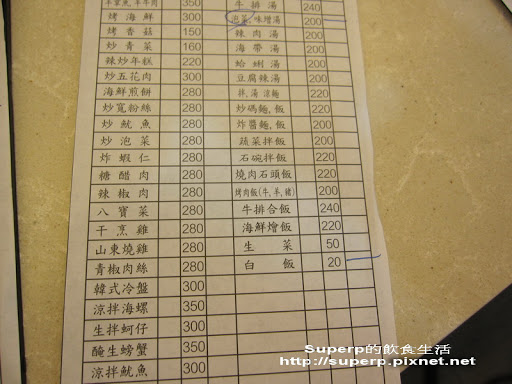 350 牛排湯 240
烤海鮮 300 泡菜,味噌湯 200
烤香菇 150 辣肉湯 200
炒青菜 160 海帶湯 200
辣炒年糕 220 蛤蜊湯 200
炒五花肉 300 豆腐辣湯 200
海鮮煎餅 280 拌,湯 涼麵 220
炒寬粉絲 280 炒碼麵,飯 200
炒魷魚 280 炸醬麵,飯 200
炒泡菜 280 蔬菜拌飯 200
炸蝦仁 280 石碗拌飯 220
糖醋肉 280 燒肉石頭飯 220
辣椒肉 280 烤肉飯(牛,羊,豬) 200
八寶菜 280 牛排合飯 240
干烹雞 280 海鮮燴飯 220
山東燒雞 280 生菜 50
青椒肉絲 280 白飯 20
韓式冷盤 300
涼拌海螺 350
生拌蚵仔 300
醃生螃蟹 350
涼拌魷魚 300
Superp的飲食生活
http://superp.pixnet.net